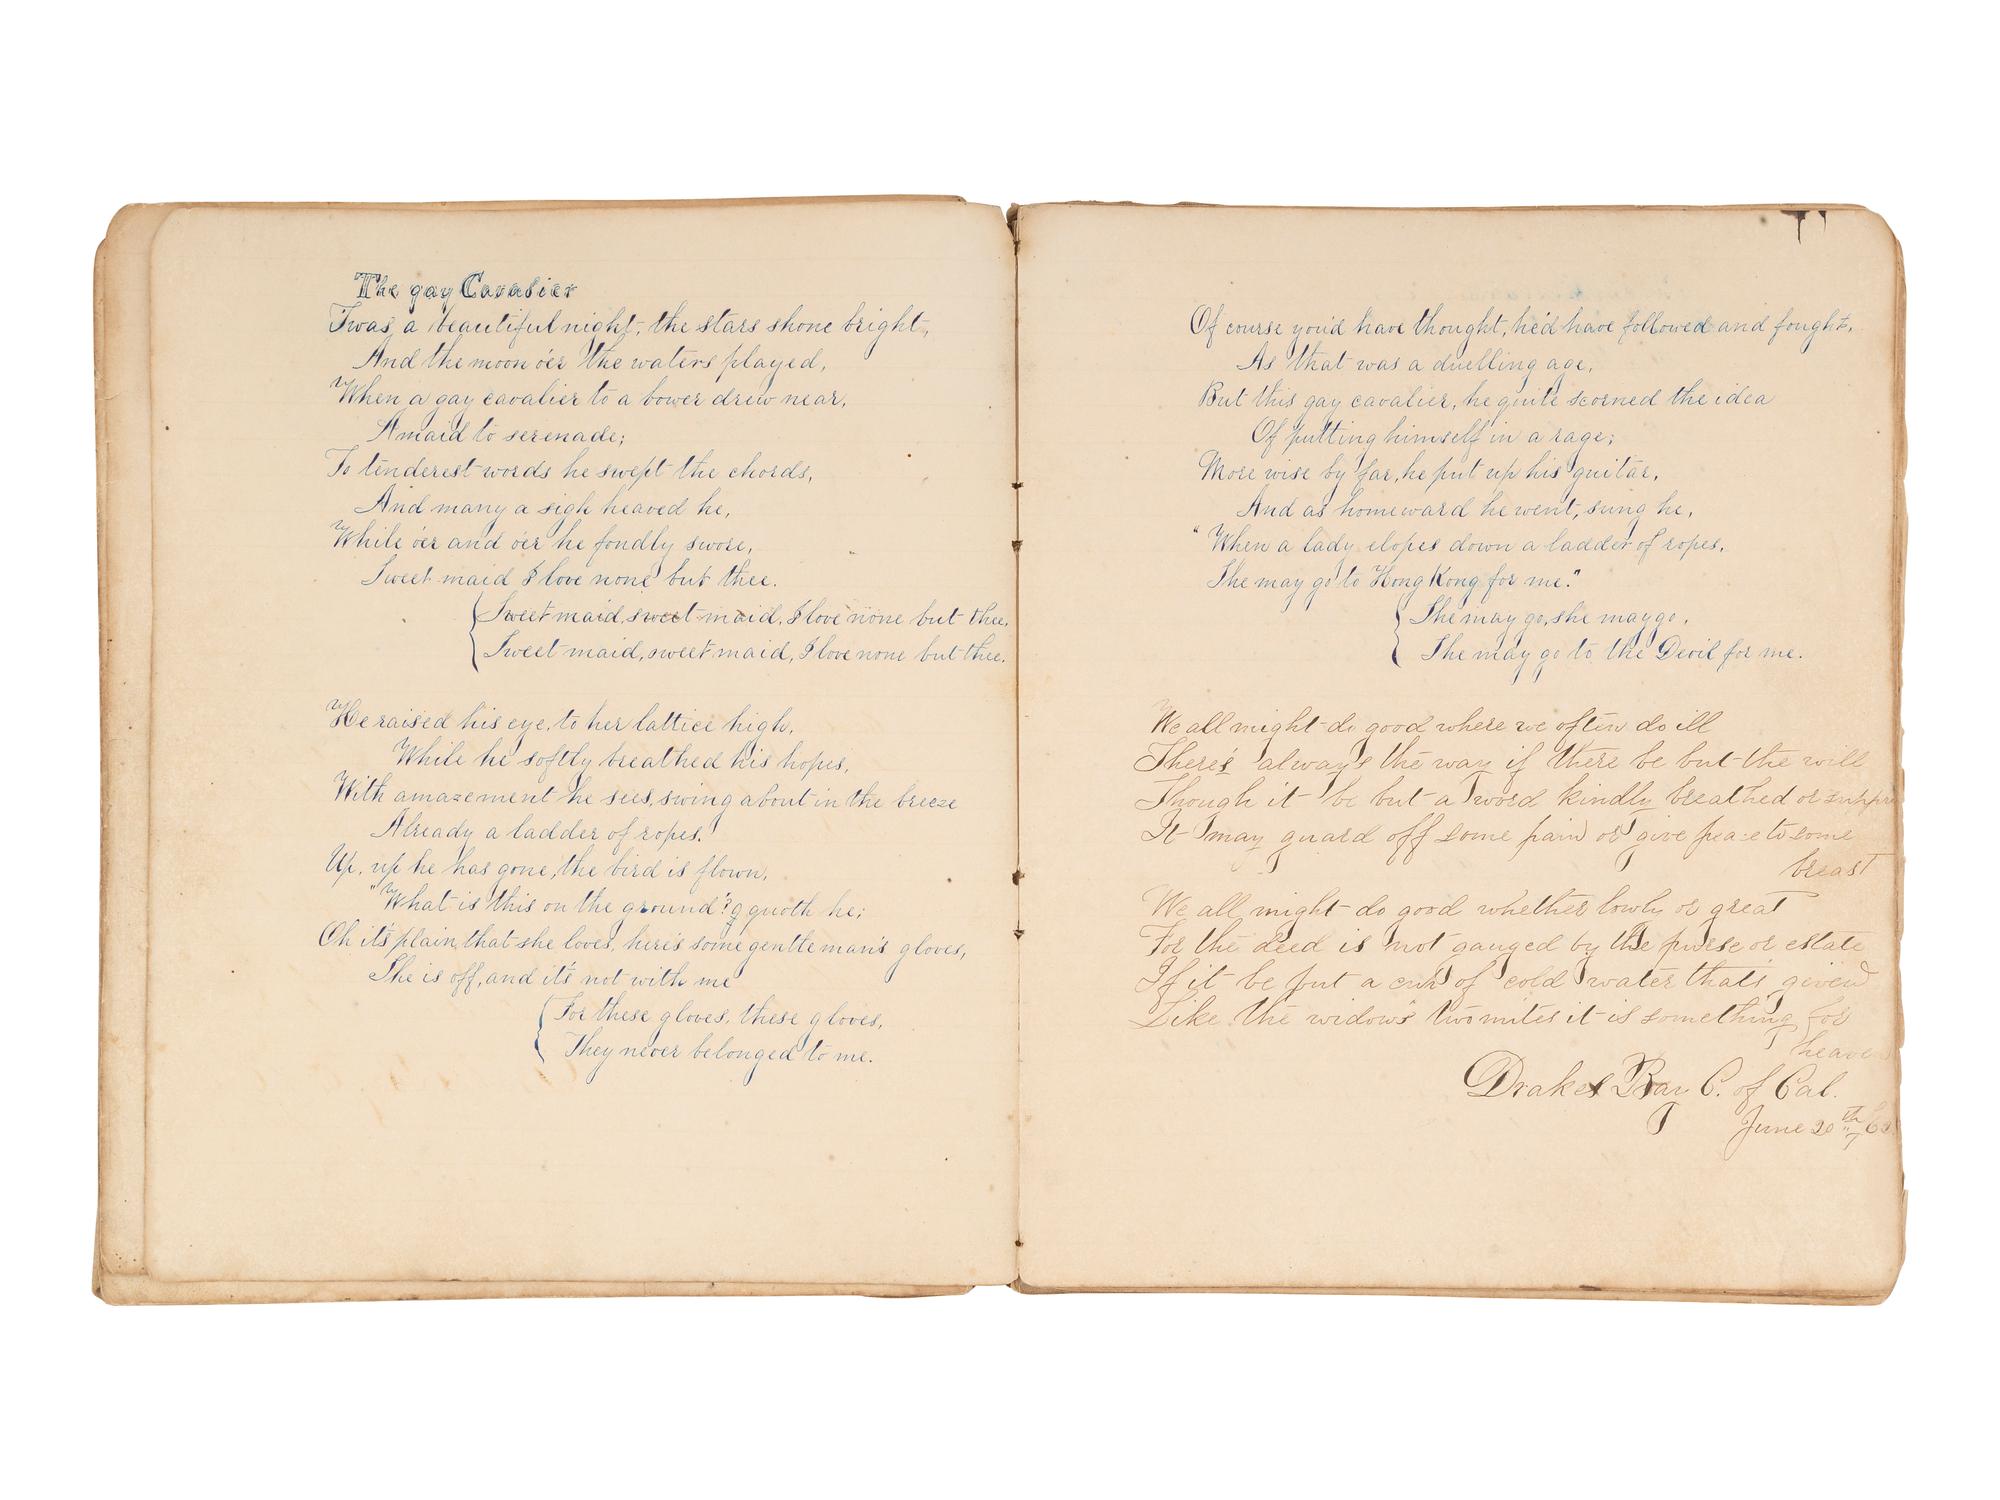 The gay Cavalier
Twas a beautiful night, the stars shone bright,
And the moon o'er the waters played,
When a gay cavalier to a bower drew near,
A maid to serenade;
To tenderest words he swept the chords,
And many a sigh heaved he,
While o'er and o'er he fondly swore,
Sweet maid I love none but thee.
Sweet maid, sweet maid, I love none but thee,
Sweet maid, sweet maid, I love none but thee.
He raised his eye, to her lattice high,
While he softly breathed his hopes,
With amazement he sees, swing about in the breeze
Already a ladder of ropes.
Up, up he has gone, the bird is flown,
"What is this on the ground"? quoth he;
Oh it's plain, that she loves, here's some gentleman's gloves,
She is off, and it's not with me
For these gloves, these gloves,
They never belonged to me.
Of course you'd have thought, he'd have followed and fought,
As that was a duelling age,
But this gay cavalier, he quite scorned the idea
Of putting himself in a rage;
More wise by far, he put up his guitar,
And as homeward he went, sung he,
"When a lady elopes down a ladder of ropes,
She may go to Hong Kong for me."
She may go, she may go,
She may go to the Devil for me.
We all might do good where we often do ill
There's always the way if there be but the will
Though it be but a word kindly breathed or suppre
It may guard off some pain or give peace to some
breast
We all might do good whether lowly or great
For the deed is not gauged by the purse or estate
If it be but a cup of cold water that's given
Like the widow's two mites it is something for
heaven
Drakes Bay C. of Cal.
June 20th